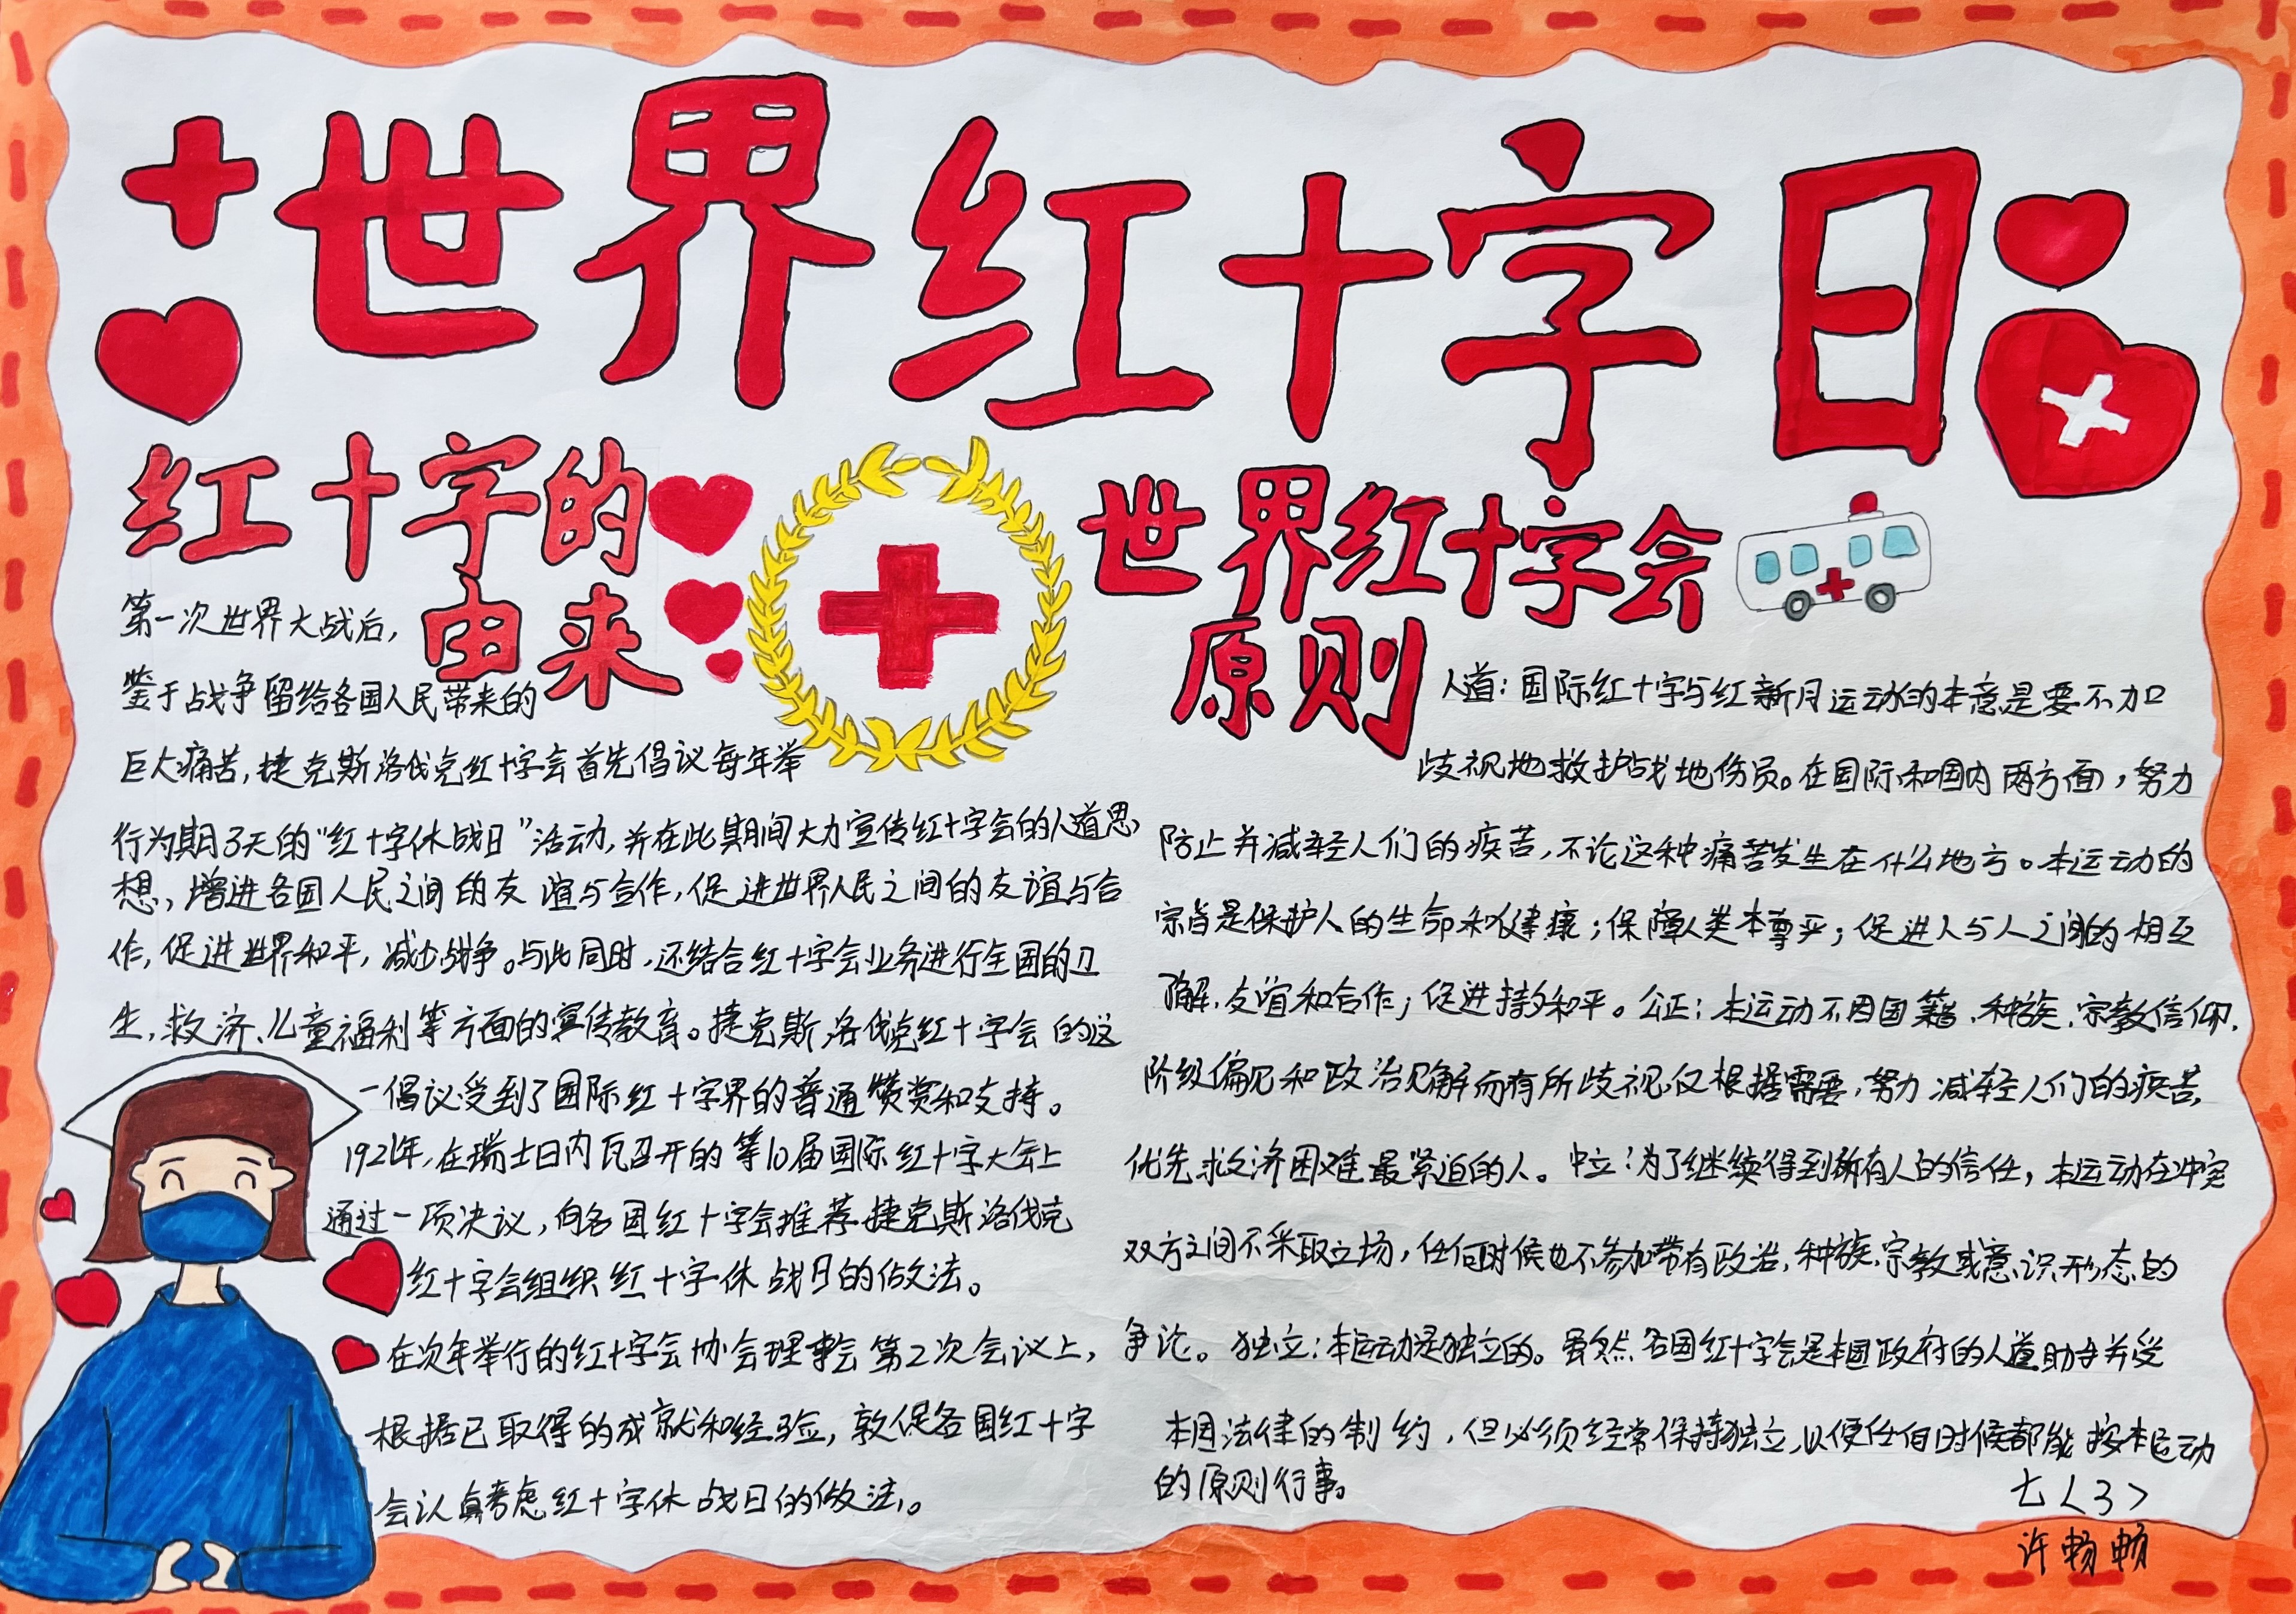 世界红十字日
红十字的
由来
第一次世界大战后,
鉴于战争留给各国人民带来的
巨大痛苦,捷克斯洛伐克红十字会首先倡议每年举
行为期3天的“红十字休战日”活动,并在此期间大力宣传红十字会的人道思
想,增进各国人民之间的友谊与合作,促进世界人民之间的友谊与合
作,促进世界和平,减少战争。与此同时,还结合红十字会业务进行全国的卫
生,救济、儿童福利等方面的宣传教育。捷克斯洛伐克红十字会的这
一倡议受到了国际红十字界的普通赞赏和支持。
1921年,在瑞士日内瓦召开的等10届国际红十字大会上
通过一项决议,向各国红十字会推荐捷克斯洛伐克
红十字会组织红十字休战日的做法。
在次年举行的红十字会协会理事会第2次会议上,
根据已取得的成就和经验,敦促各国红十字
会认真考虑红十字休战日的做法。
世界红十字会
原则
人道:国际红十字与红新月运动的本意是要不加
歧视地救护战地伤员。在国际和国内两方面,努力
防止并减轻人们的疾苦,不论这种痛苦发生在什么地方。本运动的
宗旨是保护人的生命和健康;保障人类本尊严;促进人与人之间的相互
了解、友谊和合作;促进持久和平。公正:本运动不因国籍、种族、宗教信仰、
阶级偏见和政治见解而有所歧视,仅根据需要,努力减轻人们的疾苦,
优先救济困难最紧迫的人。中立:为了继续得到所有人的信任,本运动在冲突
双方之间不采取立场,任何时候也不参加带有政治,种族,宗教或意识形态的
争论。独立:本运动是独立的。虽然各国红十字会是本国政府的人道助手并受
本国法律的制约,但必须经常保持独立,以便任何时候都能按本运动
的原则行事。
七<3>
许畅畅